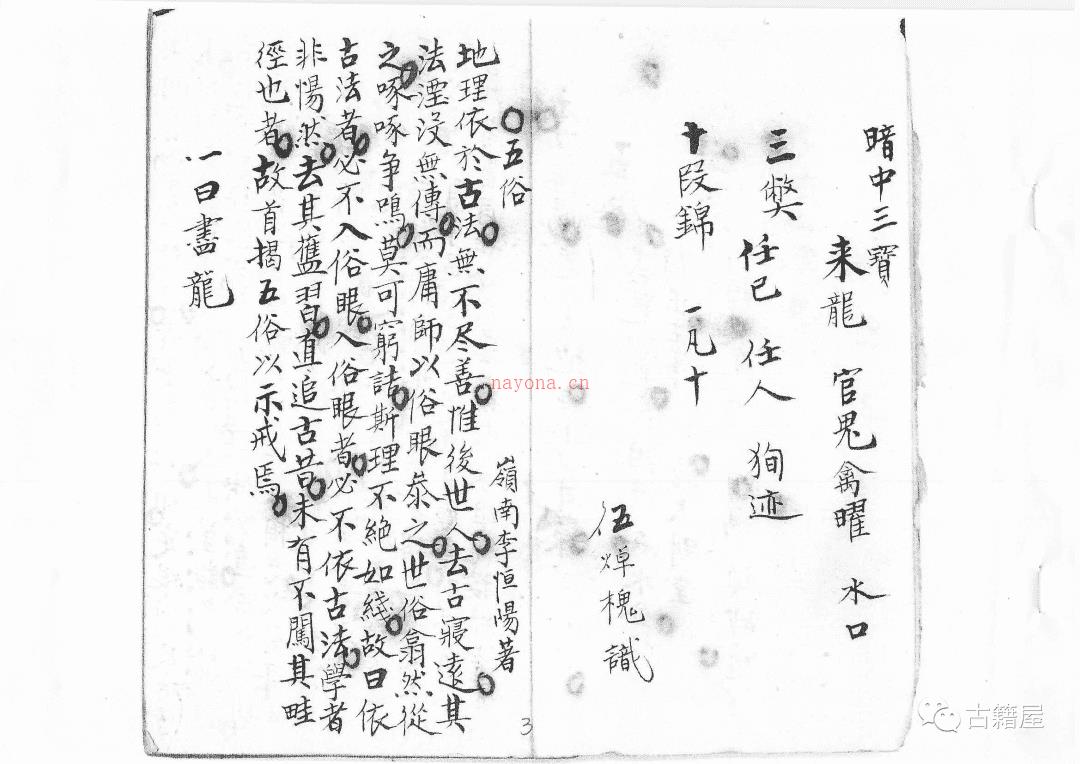 暗中三寶
来龍 官鬼禽曜 水口
三獘 任已 任人 狥迹
十段錦 一凡十
伍焯槐識
〇五俗
嶺南李恒陽著
地理依於古法無不尽善惟後世人去古寢遠其
法湮没無傳而庸師以俗眼叅之世俗翕然從
之啄啄争鳴莫可窮詰斯理不絶如綫故曰依
古法者必不入俗眼入俗眼者必不依古法學者
非惕然去其舊習直追古昔未有不闖其畦
徑也者故首揭五俗以示戒焉
一曰畫龍
3
nayona.cn
古籍屋